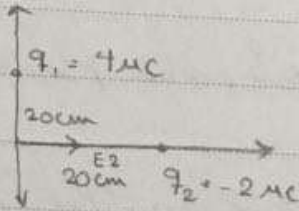 q₁ = 4 μC
20cm
E2
20cm q₂ = -2 μC